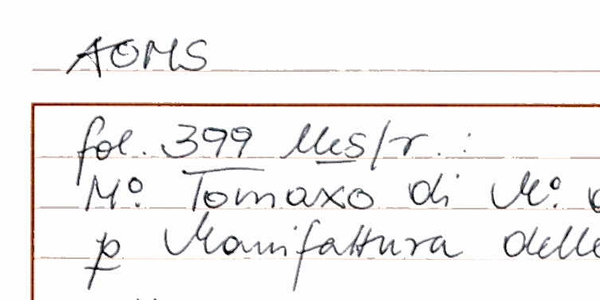 AOMS
fol. 399 Mes/r. :
Mº. Tomaxo di Mº.
p Manifattura delle